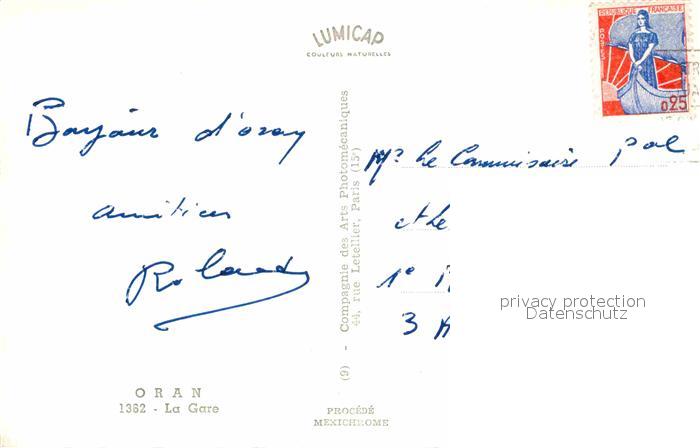 LUMICAP
COULEURS NATURELLES
REPUBLIQUE FRANÇAISE
POSTES
0,25
Bonjour d'oran
amitiés
Roland
(9) - Compagnie des Arts Photomécaniques
44, rue Letellier, Paris (15e)
Mr. Le Commissaire
et Le
1e
3
privacy protection
Datenschutz
ORAN
1362 - La Gare
PROCÉDÉ
MEXICHROME